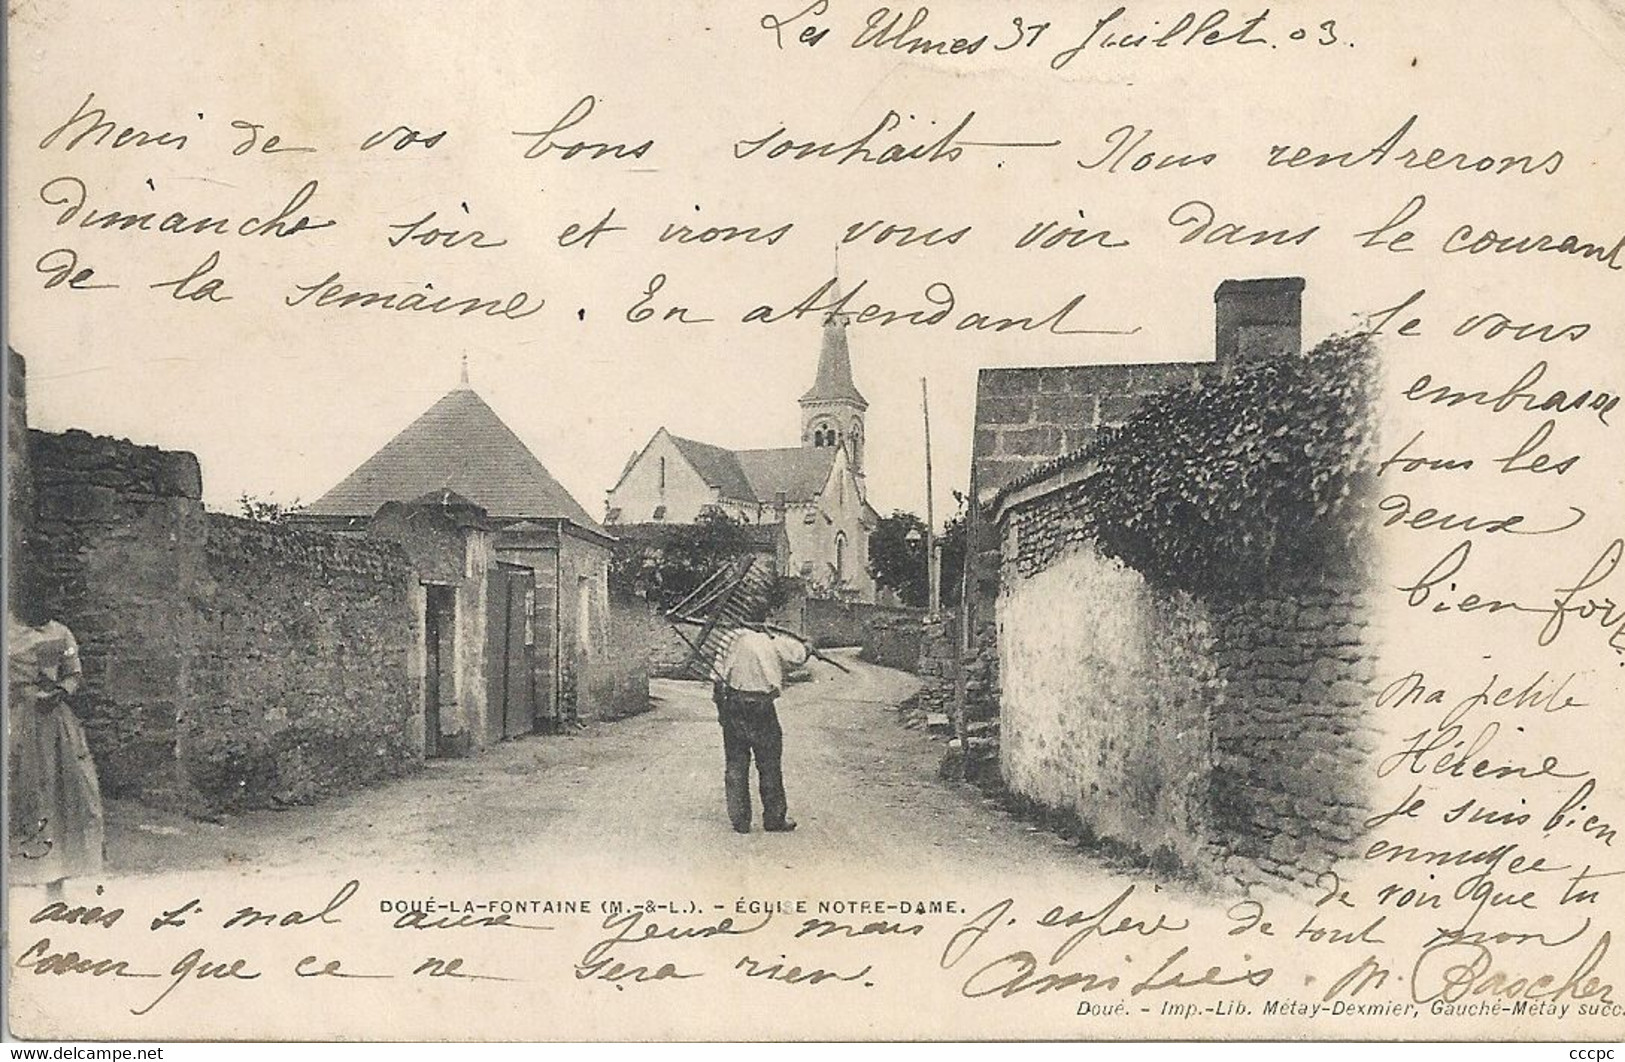 Les Ulmes 31 Juillet .03.
Merci de vos bons souhaits. Nous rentrerons
dimanche soir et irons vous voir dans le courant
de la semaine. En attendant Je vous
embrasse
tous les
deux
bien fort.
Ma petite
Hélène
Je suis bien
ennuyee
de voir que tu
avais si mal aux yeux mais j'espère de tout mon
coeur que ce ne sera rien. Amitiés. M. Bascher
DOUÉ-LA-FONTAINE (M.-&-L.). - ÉGLISE NOTRE-DAME.
Doué. - Imp.-Lib. Métay-Dexmier, Gauché-Métay succ.
cccpc